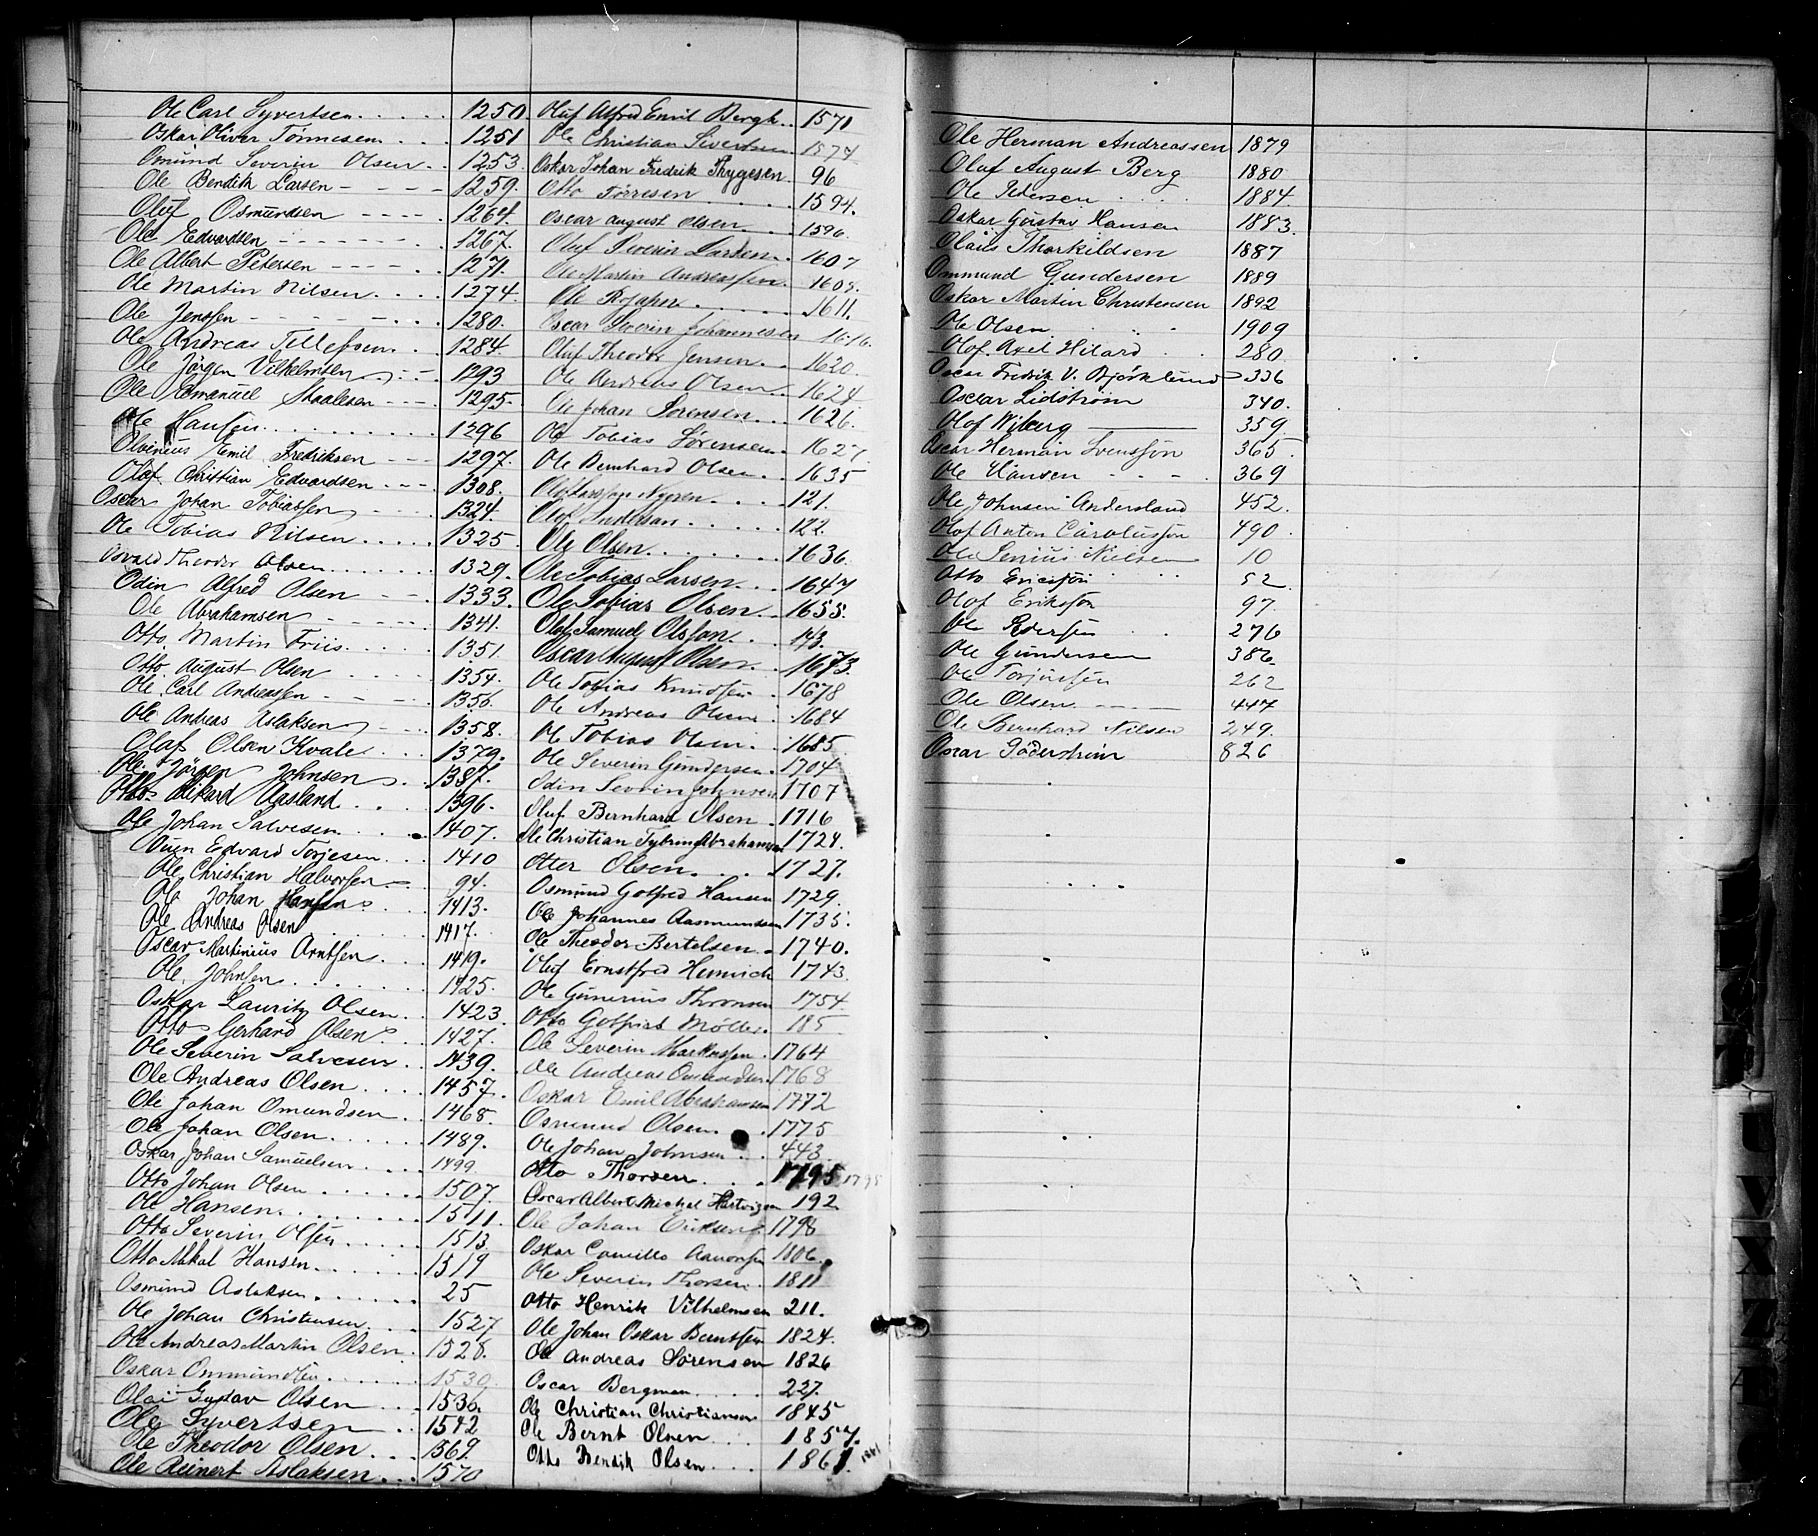 Ole Carl Syvertsen 1250
Oskar Oliver Tönnesen 1251
Osmund Severin Olsen 1253
Ole Bendik Larsen 1259
Oluf Osmundsen 1264
Ole Edvardsen 1267
Ole Albert Petersen 1271
Ole Martin Nilsen 1274
Ole Jenssen 1280
Ole Andreas Tellefsen 1284
Ole Jörgen Vilhelmsen 1293
Ole Emanuel Staalesen 1295
Ole Hansen 1296
Olvenius Emil Fredriksen 1297
Olaf Christian Edvardsen 1308
Oscar Johan Tobiassen 1324
Ole Tobias Nilsen 1325
Osvald Theodor Olsen 1329
Odin Alfred Olsen 1333
Ole Abrahamsen 1341
Otto Martin Friis 1351
Otto August Olsen 1354
Ole Carl Andreassen 1356
Ole Andreas Aslaksen 1358
Olaf Olsen Kvale 1379
Ole Jörgen Johnsen 1387
Otto Rikard Aasland 1396
Ole Johan Salvesen 1407
Ouen Edvard Torjesen 1410
Ole Christian Halvorsen 94
Ole Johan Hansen 1413
Ole Andreas Olsen 1417
Oscar Martinius Arntsen 1419
Ole Johnsen 1425
Oskar Lauritz Olsen 1423
Otto Gerhard Olsen 1427
Ole Severin Salvesen 1439
Ole Andreas Olsen 1457
Ole Johan Omundsen 1468
Ole Johan Olsen 1489
Oskar Johan Samuelsen 1499
Otto Johan Olsen 1507
Ole Hansen 1511
Otto Severin Olsen 1513
Otto Mikal Hansen 1519
Osmund Aslaksen 25
Ole Johan Christensen 1527
Ole Andreas Martin Olsen 1528
Oskar Ommundsen 1530
Olai Gustav Olsen 1536
Ole Syvertsen 1542
Ole Theodor Olsen 1569
Ole Reinert Aslaksen 1570
Oluf Alfred Emil Bergh 1571
Ole Christian Sivertsen 1574
Oskar Johan Fredrik Thygesen 96
Otto Törresen 1594
Oscar August Olsen 1596
Oluf Severin Larsen 1607
Ole Martin Andreassen 1609
Ole 1611
Oscar Severin Johannesen 1616
Oluf Theodor Jensen 1620
Ole Andreas Olsen 1624
Ole Johan Sörensen 1626
Ole Tobias Sörensen 1627
Ole Bernhard Olsen 1635
Nyren 121
Olof Anderson 122
Ole Olsen 1636
Ole Tobias Larsen 1647
Ole Tobias Olsen 1655
Olof Samuel Olsson 143
Oscar August Olsen 1673
Ole Tobias Knudsen 1678
Ole Andreas Olsen 1684
Ole Tobias Olsen 1685
Ole Severin Gundersen 1704
Odin Severin Johnsen 1707
Oluf Bernhard Olsen 1716
Ole Christian Tybring Abrahamsen 1724
Otter Olsen 1727
Osmund Gotfred Hansen 1729
Ole Johannes Aasmundsen 1735
Ole Theodor Bertelsen 1740
Oluf Ernstfred Henrich 1743
Ole Gunerius Thronsen 1754
Otto Gotfried Möller 185
Ole Severin Markussen 1764
Ole Andreas Osmundsen 1768
Oskar Emil Abrahamsen 1772
Osmund Olsen 1775
Ole Johan Johnsen 443
Otto Thorsen 1795 1795
Oscar Albert Michal Hartvigsen 192
Ole Johan Eriksen 1798
Oskar Camillo Aanonsen 1806
Ole Severin Thorsen 1811
Otto Henrik Vilhelmsen 211
Ole Johan Oskar Berntsen 1824
Ole Andreas Sörensen 1826
Oscar Bergman 227
Ole Christian Christiansen 1845
Ole Bernt Olsen 1857
Otto Bendik Olsen 1861 1861
Ole Herman Andreassen 1879
Oluf August Berg 1880
Ole Pedersen 1884
Oskar Gustav Hansen 1883
Olaüs Thorkildsen 1887
Ommund Gundersen 1889
Oskar Martin Christensen 1892
Ole Olsen 1909
Olof Axel Hilard 280
Oscar Fredrik V. Björklund 336
Oscar Lidström 340
Olof Wiberg 359
Oscar Herman Svensson 365
Ole Hansen 369
Ole Johnsen Andersland 452
Olof Anton Carolusson 490
Ole Nielsen 10
Otto Ericsson 52
Olof Eriksson 97
Ole Pedersen 276
Ole Gundersen 386
Ole Torjussen 262
Ole Olsen 447
Ole Bernhard Nilsen 249
Oscar Söderström 826
U
V
X
Z